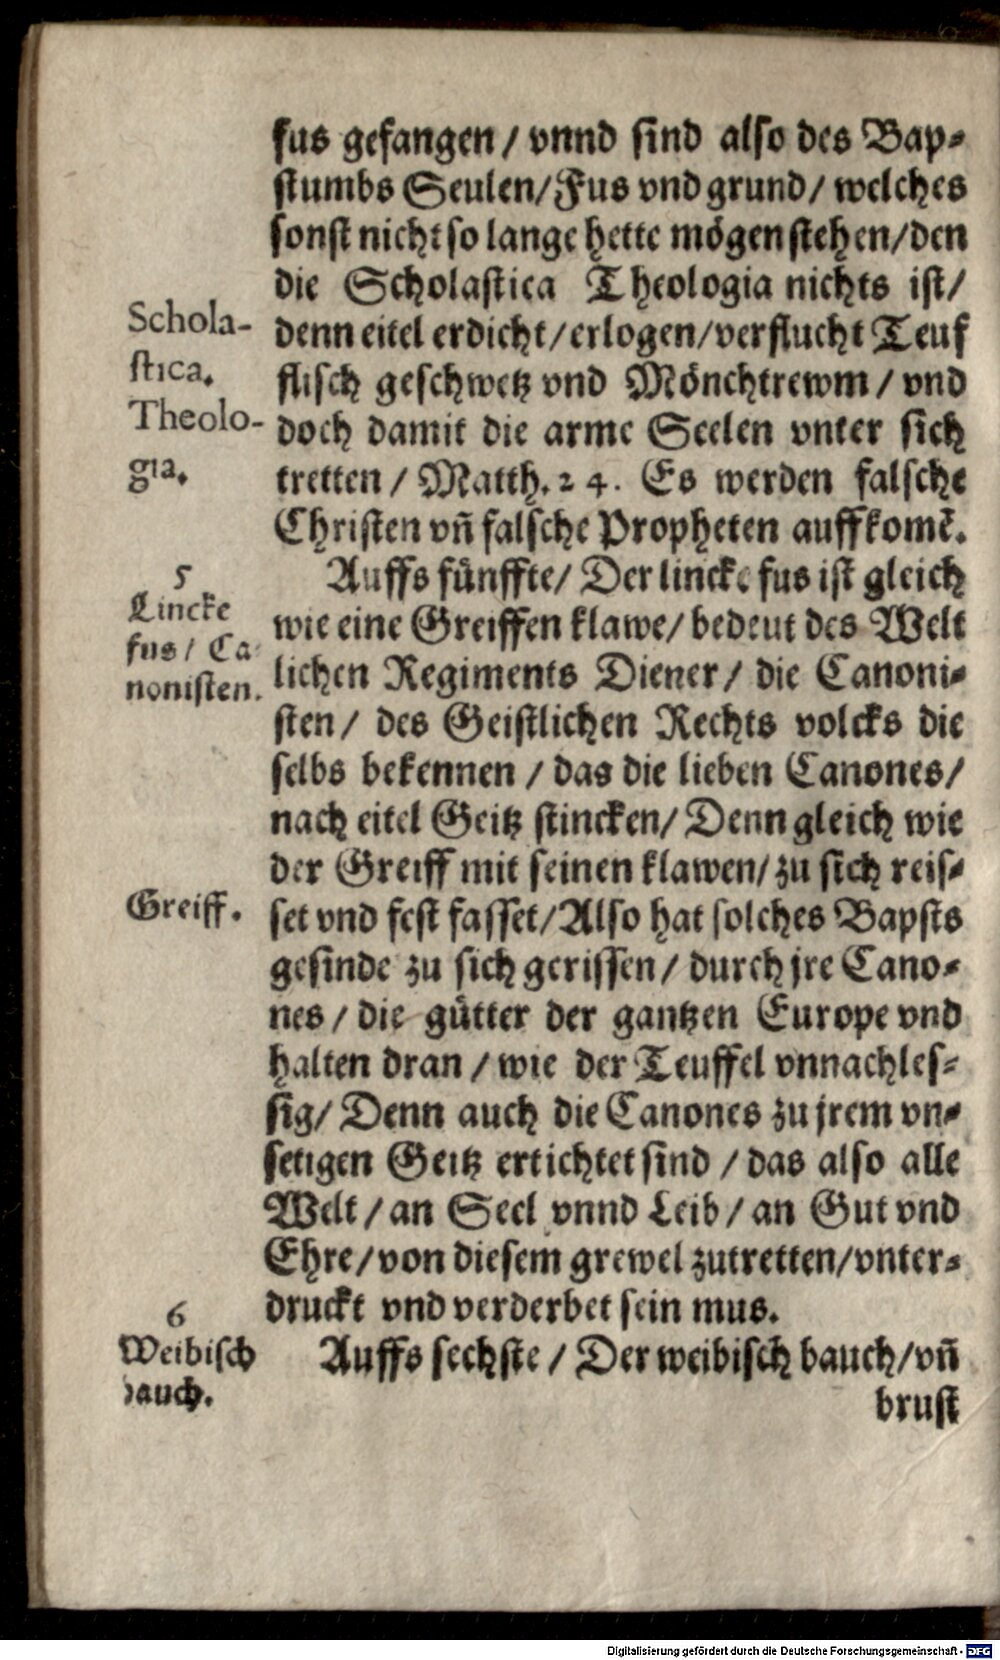 fus gefangen / vnnd sind also des Bap⸗
stumbs Seulen/Fus vnd grund/ welches
sonst nicht so lange hette mögen stehen/den
die Scholastica Theologia nichts ist/
denn eitel erdicht/erlogen/verflucht Teuf
flisch geschwetz vnd Mönchtrewm / vnd
doch damit die arme Seelen vnter sich
tretten / Matth. 24. Es werden falsche
Christen vñ falsche Propheten auffkomē.
Schola-
stica.
Theolo-
gia.
Auffs fünffte/ Der lincke fus ist gleich
wie eine Greiffen klawe/ bedeut des Welt
lichen Regiments Diener/ die Canoni⸗
sten/ des Geistlichen Rechts volcks die
selbs bekennen / das die lieben Canones/
nach eitel Geitz stincken/ Denn gleich wie
der Greiff mit seinen klawen/ zu sich reis⸗
set vnd fest fasset/Also hat solches Bapsts
gesinde zu sich gerissen/ durch jre Cano⸗
nes / die gütter der gantzen Europe vnd
halten dran / wie der Teuffel vnnachles⸗
sig/ Denn auch die Canones zu jrem vn⸗
setigen Geitz ertichtet sind / das also alle
Welt / an Seel vnnd Leib/ an Gut vnd
Ehre/von diesem grewel zutretten/vnter⸗
druckt vnd verderbet sein mus.
5
Lincke
fus/ Ca
nonisten.
Greiff.
Auffs sechste / Der weibisch bauch/vñ
brust
6
Weibisch
bauch.
Digitalisierung gefördert durch die Deutsche Forschungsgemeinschaft - DFG